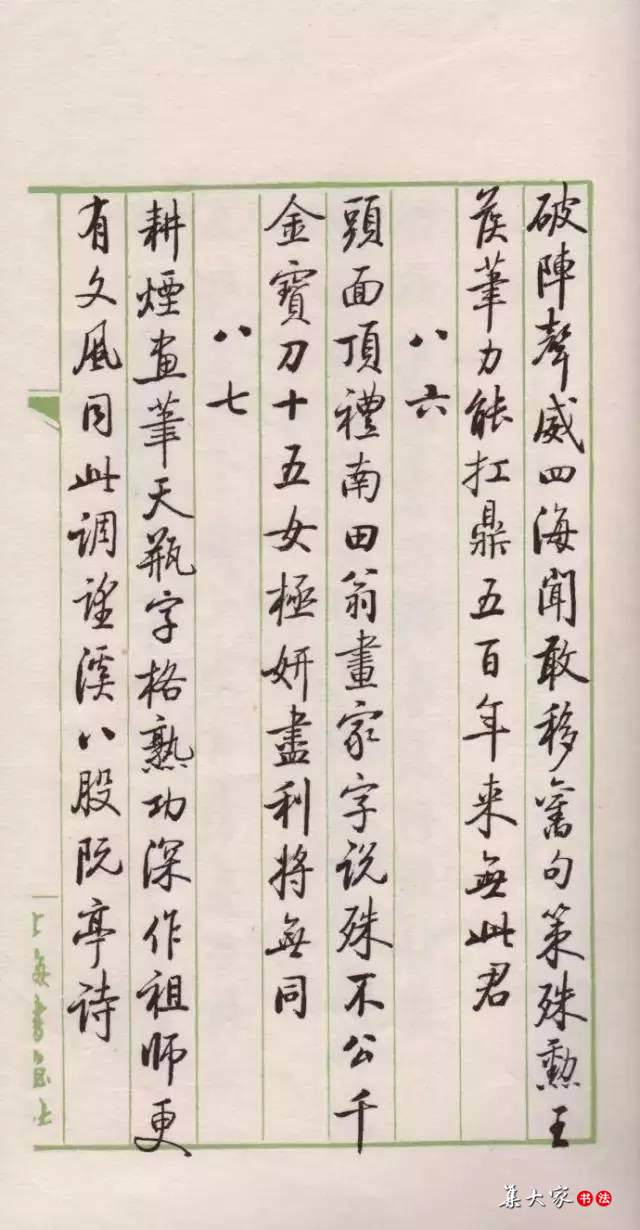 破陣聲威四海聞敢移舊句策殊勳王
侯筆力能扛鼎五百年来無此君
八六
頭面頂禮南田翁畫家字说殊不公千
金寶刀十五女極妍盡利將無同
八七
耕煙畫筆天瓶字格熟功深作祖師更
有文風同此调望溪八股阮亭詩
上海書画社
集大家书法